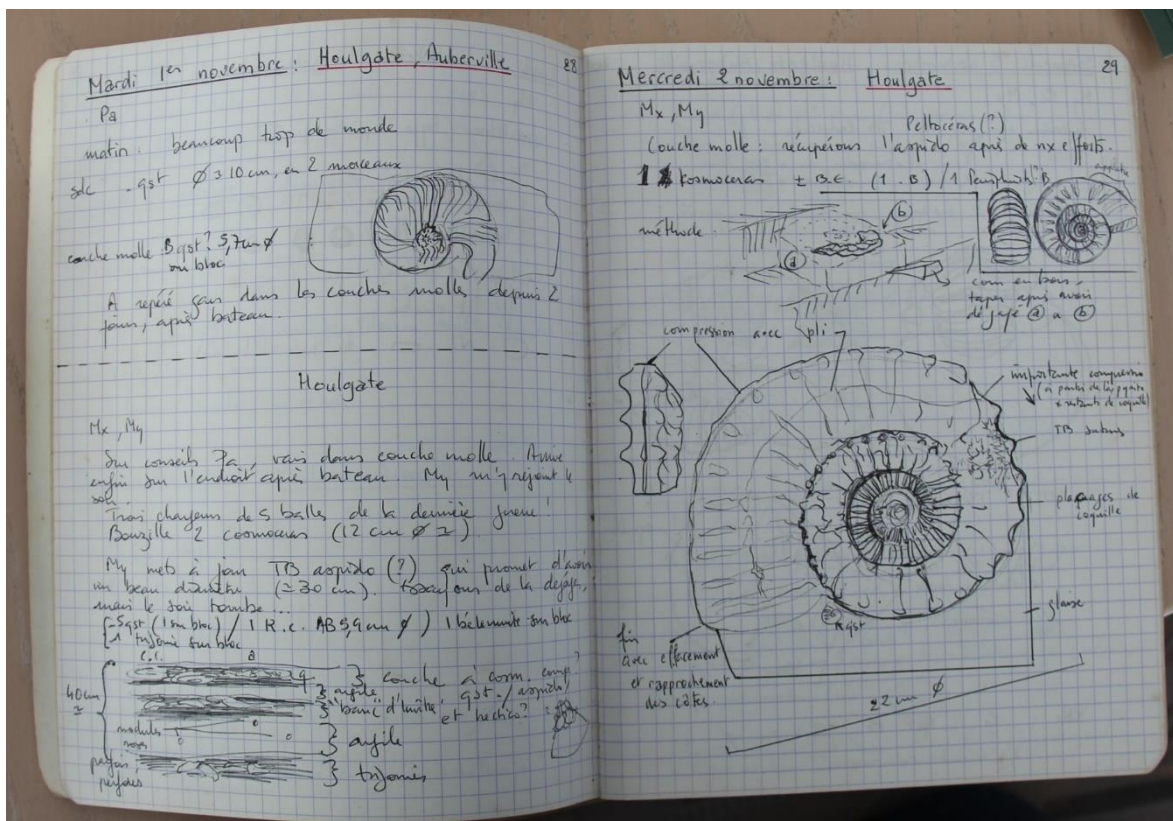 Mardi 1er novembre : Houlgate, Auberville
28
Pa
matin : beaucoup trop de monde
sdc . gst Ø ≃ 10 cm, en 2 morceaux
couche molle B gst ? 5,7 cm Ø
sur bloc
A repéré dans les couches molles depuis 2
jours, après bateau.
Houlgate
Mx, My
Sur conseils Pa, vais dans couche molle. Arrive
enfin sur l'endroit après bateau. My m'y rejoint le
soir.
Trois chargeurs de 5 balles de la dernière guerre !
Bousille 2 cosmoceras (12 cm Ø ≃).
My mets à jour TB aspido (?) qui promet d'avoir
un beau diamètre (≃ 30 cm). de la
mais le soir tombe ...
5 gst (1 sur bloc) / 1 R.c. AB 5,9 cm Ø / 1 bélemnite sur bloc
1 trigonie sur bloc
40 cm
≃
couche à corm. comp.
argile
"banc" d'huître gst. / aspido /
et hectico ?
nodules
argile
parfois
perforés
trigonies
Mercredi 2 novembre : Houlgate
29
Mx, My
Peltoceras (?)
Couche molle : récupérons l'aspido après de nx efforts.
1 kosmoceras ± B.C. (1 . B) / 1
méthode
a
b
coin en bois,
taper après avoir
dégagé a à b
compression avec pli
importante compression
(à partir de la pyrite
restants de coquille)
TB
placages de
coquille
glaise
gst
fin
avec effacement
et rapprochement
des côtes.
22 cm Ø